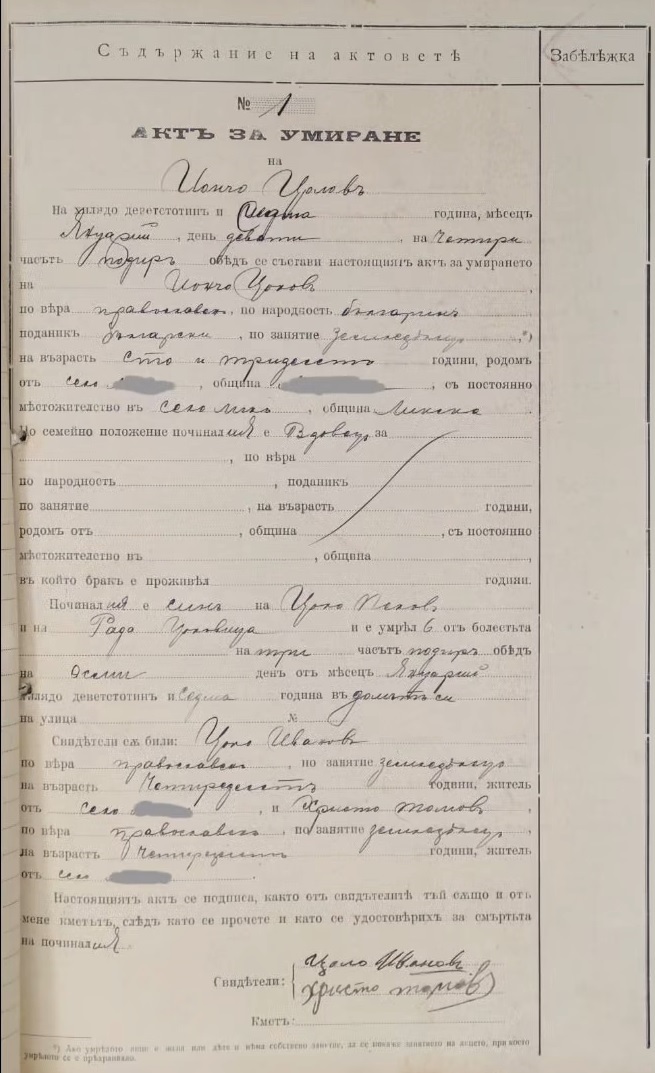 Съдържание на актоветѣ
Забѣлѣжка
№ 1
АКТЪ ЗА УМИРАНЕ
на
Йончо Цоловъ
На хилядо деветстотинъ и седма година, мѣсецъ
Януарий, день девяти, на четири
часътъ подиръ обѣдъ се състави настоящиятъ актъ за умирането
на Йончо Цоловъ,
по вѣра православенъ, по народность българинъ
поданикъ български, по занятие земледѣлецъ, *)
на възрасть сто и тридесетъ години, родомъ
отъ село, община, съ постоянно
мѣстожителство въ село, община
По семейно положение починалия е вдовецъ за
, по вѣра
по народность, поданикъ
по занятие, на възрасть години,
родомъ отъ, община, съ постоянно
мѣстожителство въ, община,
въ който бракъ е проживѣл години.
Починалия е синъ на Цоло
и на Рада и е умрѣл отъ болестьта
на три часътъ подиръ обѣдъ
на осми день отъ мѣсецъ Януарий
хилядо деветстотинъ и седма година въ домътъ си
на улица №
Свидѣтели сѫ били: Цоло Ивановъ
по вѣра православенъ, по занятие земледѣлецъ
на възрасть четиредесетъ години, жител
отъ село, и Христо Томовъ,
по вѣра православенъ, по занятие земледѣлецъ,
на възрасть четиредесетъ години, жител
отъ село.
Настоящиятъ актъ се подписа, както отъ свидѣтелитѣ тъй сѫщо и отъ
мене кметътъ, слѣдъ като се прочете и като се удостовѣрихъ за смъртьта
на починалия
Свидѣтели: Цоло Ивановъ
Христо Томовъ
Кметъ:
*) Ако умрѣлото лице е жена или дѣте и нѣма собствено занятие, да се покаже занятието на лицето, при което
умрѣлото се е прѣхранвало.